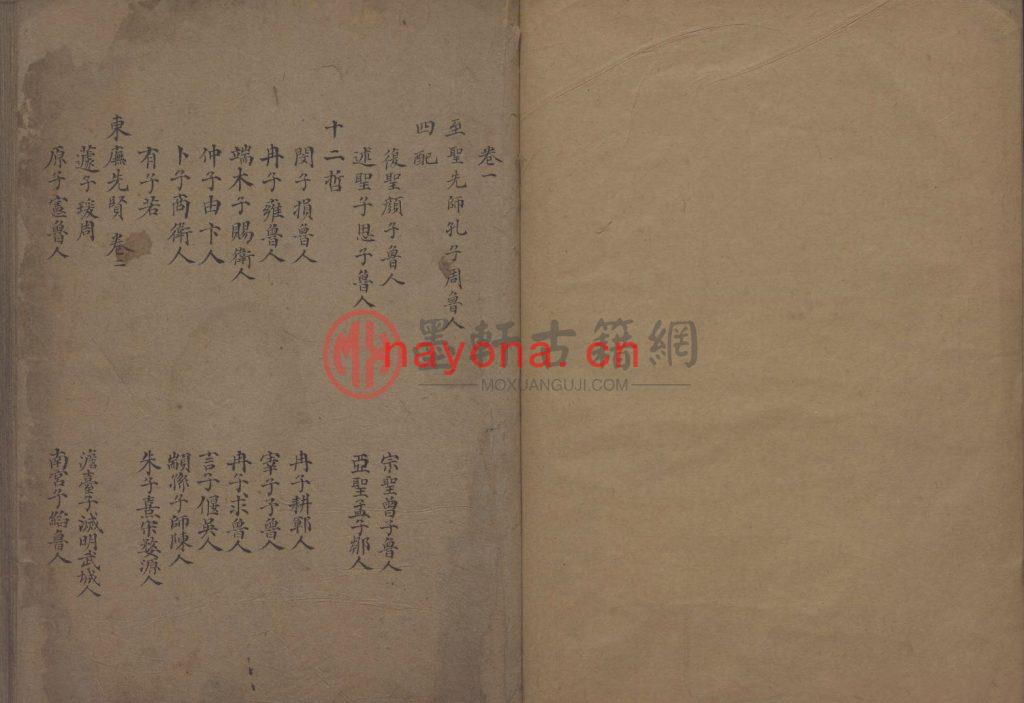 卷一
至聖先師孔子周魯人
四配
復聖顏子魯人 宗聖曾子魯人
述聖子思子魯人 亞聖孟子鄒人
十二哲
閔子損魯人 冉子耕鄆人
冉子雍魯人 宰子予魯人
端木子賜衛人 冉子求魯人
仲子由卞人 言子偃吳人
卜子商衛人 顓孫子師陳人
有子若 朱子熹宋婺源人
東廡先賢 卷二
蘧子瑗周 澹臺子滅明武城人
原子憲魯人 南宮子縚魯人
墨軒古籍網
nayona.cn
MOXUANGUJI.COM